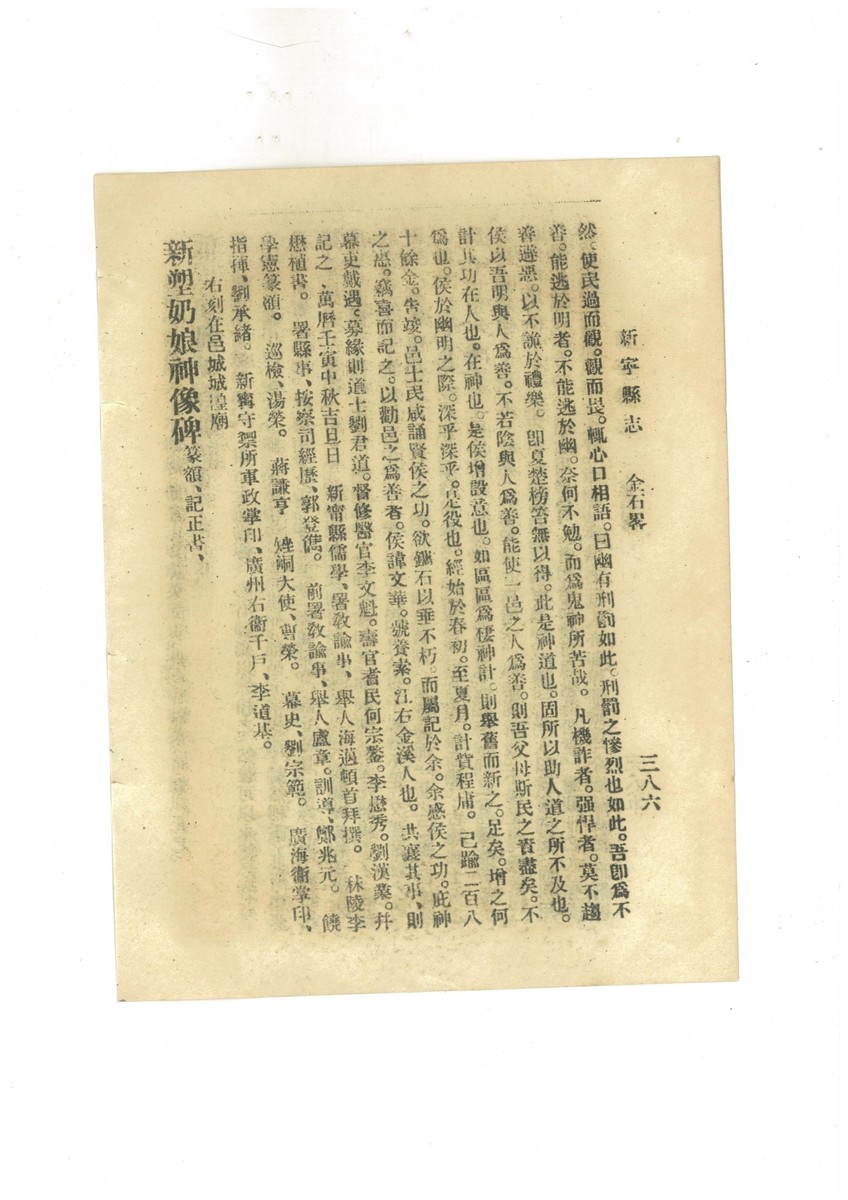 新寧縣志　金石畧　三八六
然。使民過而觀。觀而畏。輒心口相語。曰幽有刑罰如此。刑罰之慘烈也如此。吾卽爲不
善。能逃於明者。不能逃於幽。奈何不勉。而爲鬼神所苦哉。凡機詐者。强悍者。莫不趨
善避惡。以不詭於禮樂。卽夏楚榜笞無以得。此是神道也。固所以助人道之所不及也。
侯以吾明與人爲善。不若陰與人爲善。能使一邑之人爲善。則吾父母斯民之責盡矣。不
計其功在人也。在神也。是侯增設意也。如區區爲棲神計。則舉舊而新之。足矣。增之何
爲也。侯於幽明之際。深乎深乎。是役也。經始於春初。至夏月。計貲程庸。已踰二百八
十餘金。告竣。邑士民咸誦賢侯之功。欲鑴石以垂不朽。而屬記於余。余感侯之功。庇神
之惠。竊喜而記之。以勸邑之爲善者。侯諱文華。號養素。江右金溪人也。共襄其事、則
幕吏戴遇。募緣則道士劉君道。督修醫官李文魁。壽官耆民何宗鏊。李懋秀。劉漢業。幷
記之、萬曆壬寅中秋吉旦日　新甯縣儒學、署敎諭事、舉人海邁頓首拜撰。　秣陵李
懋植書。　署縣事、按察司經歷、郭登儁。　前署敎諭事、舉人盧章。訓導、鄭兆元。　饒
學憲篆額。　巡檢、湯榮。　蔣謙亨　矬峒大使、曹榮。　幕史、劉宗範。　廣海衞掌印、
指揮、劉承緒。　新甯守禦所軍政掌印、廣州右衞千戶、李道基。
右刻在邑城城湟廟
新塑奶娘神像碑篆額、記正書、